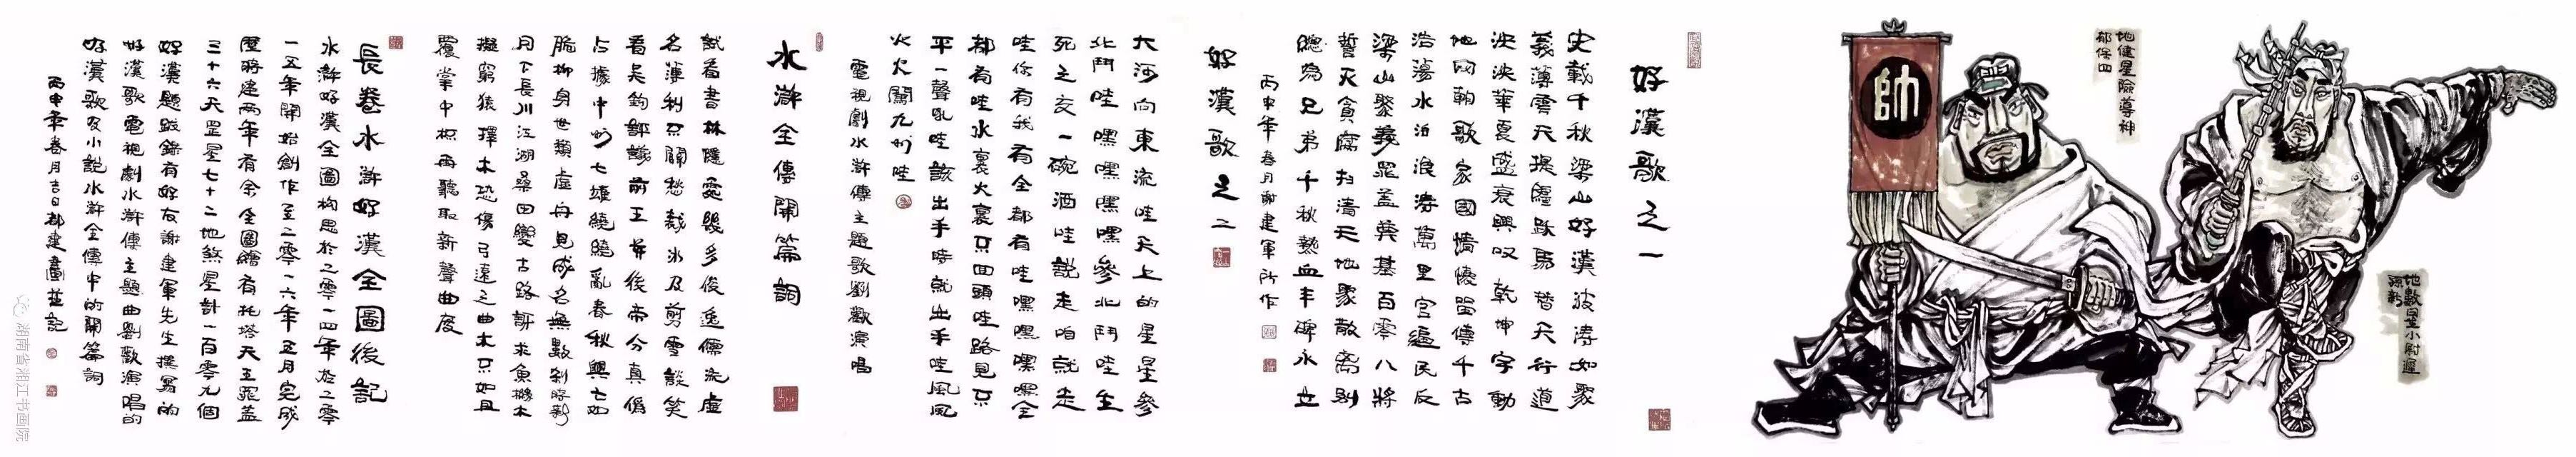 地數星小尉遲
孫新
地健星險導神
郁保四
帥
好漢歌之一
史載千秋梁山好漢波濤如聚
義薄雲天揚鞭躍馬替天行道
泱泱華夏盛衰興叹乾坤字動
地朝歌家國情懷留傳千古
浩蕩水泊浪濤萬里官逼民反
梁山聚義晁蓋奠基百零八將
誓灭貪腐扫清天地聚散离别
為兄弟千秋熱血丰碑永立
丙申年春月謝建軍所作
好漢歌之二
大河向東流哇天上的星星參
北鬥哇嘿嘿嘿嘿參北鬥哇生
死之交一碗酒哇說走咱就走
哇你有我有全都有哇嘿嘿嘿嘿全
都有哇水裏火裏不回頭哇路見不
平一聲吼哇該出手時就出手哇風風
火火闖九州哇
電視劇水滸傳主題歌劉歡演唱
水滸全傳開篇詞
試看書林隱處幾多俊逸儒流虛
名薄利不關愁裁冰及剪雪談笑
看吳鈎評議前王并後帝分真僞
占據中州七雄繞繞亂春秋興亡如
脆柳身世類虛舟見成名無數
月下長川江湖桑田變古路訝求魚緣木
擬窮猿擇木恐傷弓遠之曲木不如且
覆掌中杯再聽取新聲曲度
長卷水滸好漢全圖後記
水滸好漢全圖构思於二零一四年於二零
一五年開始創作至二零一六年五月完成
歷時建两年有余全圖繪有托塔天王晁蓋
三十六天罡星七十二地煞星計一百零九個
好漢題跋錄有好友謝建軍先生撰寫的
好漢歌電視劇水滸傳主題曲劉歡演唱的
好漢歌及小説水滸全傳中的開篇詞
丙申年春月吉日郝建圖並記
湖南省湘江书画院